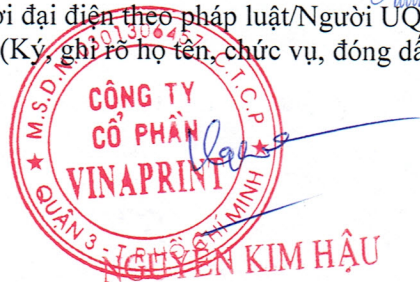 i đại diện theo pháp luật/Người UQ
(Ký, ghi rõ họ tên, chức vụ, đóng dấ
M.S.D.N: 0301306457 - C.T.C.P
CÔNG TY
CỔ PHẦN
VINAPRINT
QUẬN 3 - T.P HỒ CHÍ MINH
NGUYỄN KIM HẬU